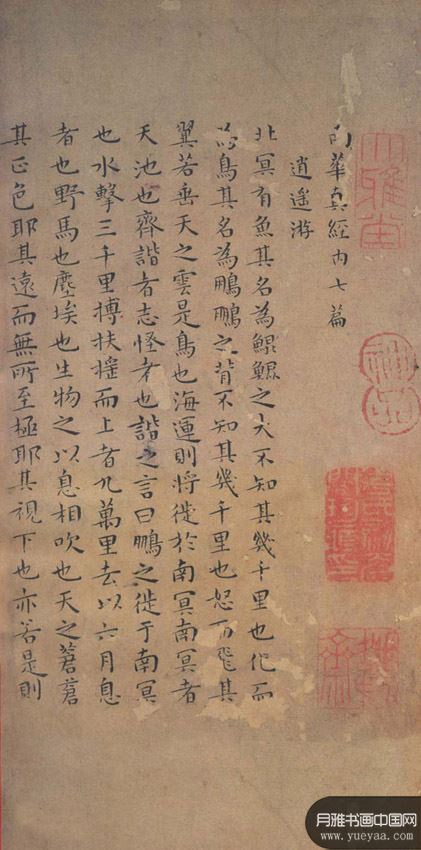 南華真經内七篇
逍遥游
北冥有魚其名為鯤鯤之大不知其幾千里也化而
為鳥其名為鵬鵬之背不知其幾千里也怒而飛其
翼若垂天之雲是鳥也海運則將徙於南冥南冥者
天池也齊諧者志怪者也諧之言曰鵬之徙于南冥
也水擊三千里摶扶摇而上者九萬里去以六月息
者也野馬也塵埃也生物之以息相吹也天之蒼蒼
其正色耶其遠而無所至極耶其視下也亦若是則
月雅书画中国网
www.yueyaa.com